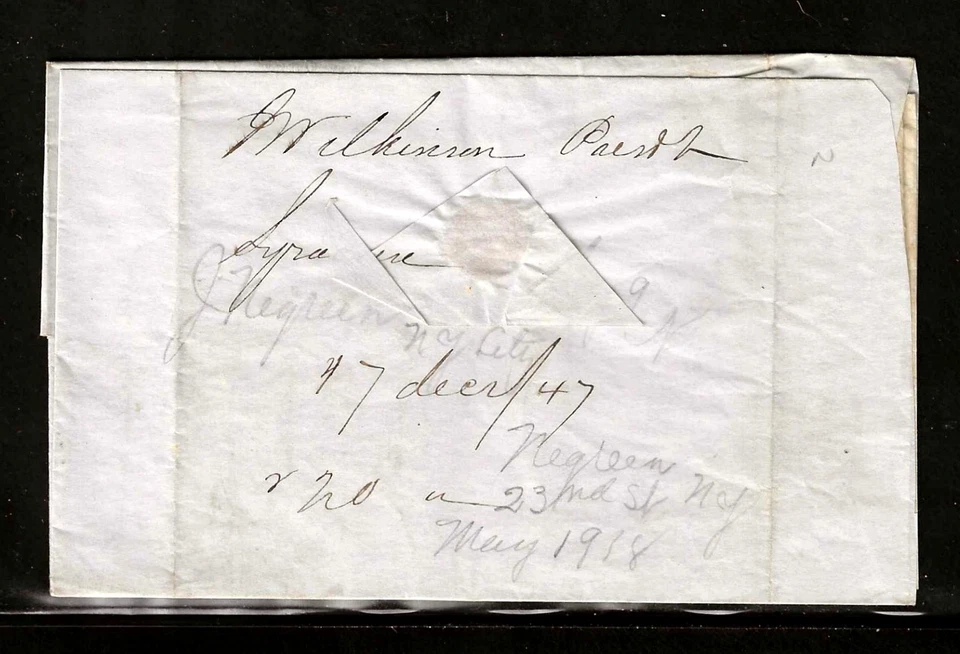 J Wilkinson Presdt
Syra use
J Negreen
9
N Y City
17 decr/47
r 20
Negreen
23nd St N Y
May 1918